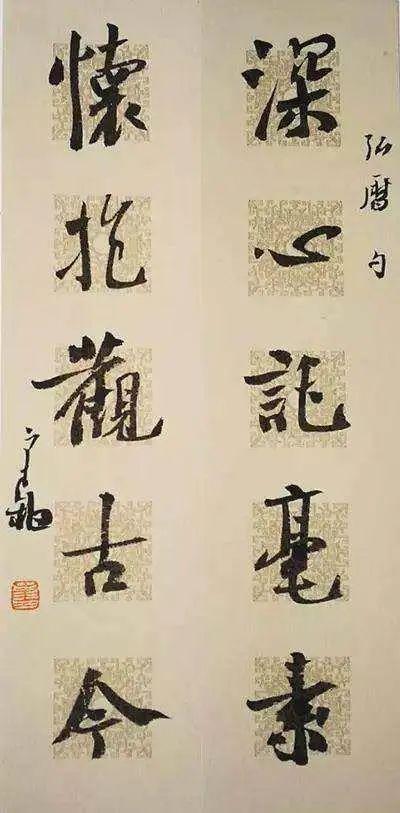 弘曆句
深心託毫素
懷抱觀古今